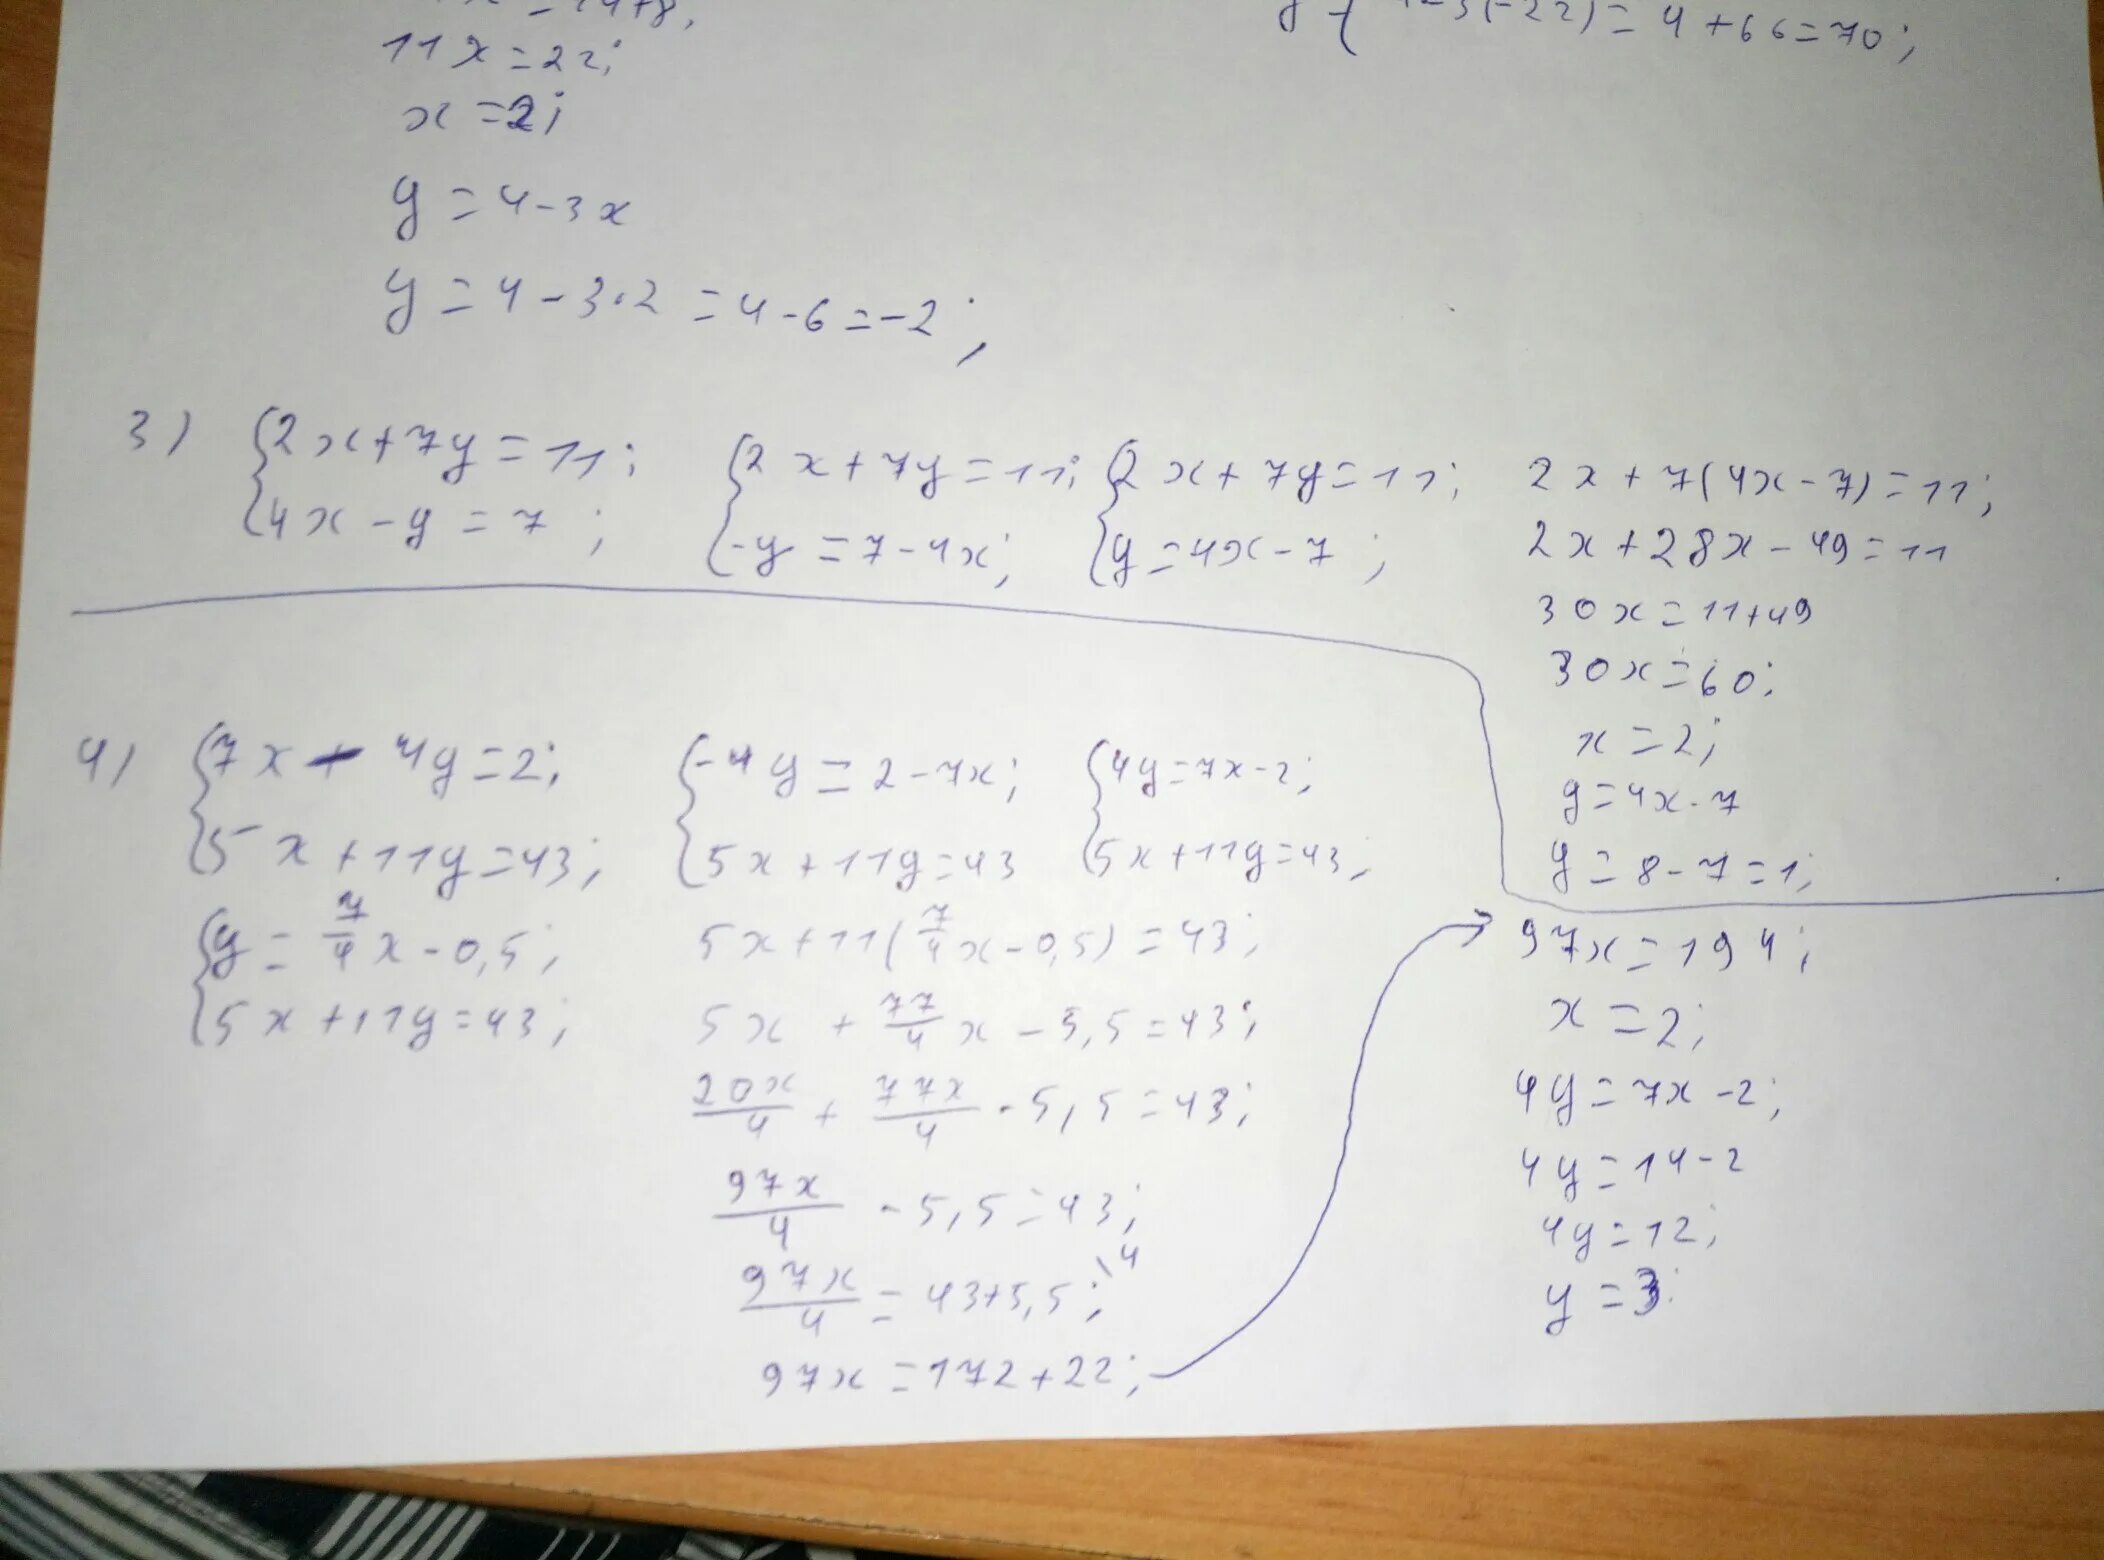 = 14+8;
11x=22;
x=2;
y=4-3x
y=4-3·2=4-6=-2;
-3(-22)=4+66=70;
3) {2x+7y=11; {2x+7y=11; {2x+7y=11;
4x-y=7; -y=7-4x; y=4x-7;
2x+7(4x-7)=11;
2x+28x-49=11
30x=11+49
30x=60;
x=2;
y=4x-7
y=8-7=1;
4) {7x-4y=2; {-4y=2-7x; {4y=7x-2;
5x+11y=43; 5x+11y=43 5x+11y=43;
{y=7/4x-0,5;
5x+11y=43;
5x+11(7/4x-0,5)=43;
5x+77/4x-5,5=43;
20x/4+77x/4-5,5=43;
97x/4-5,5=43;
97x/4=43+5,5; \4
97x=172+22;
97x=194;
x=2;
4y=7x-2;
4y=14-2
4y=12;
y=3;